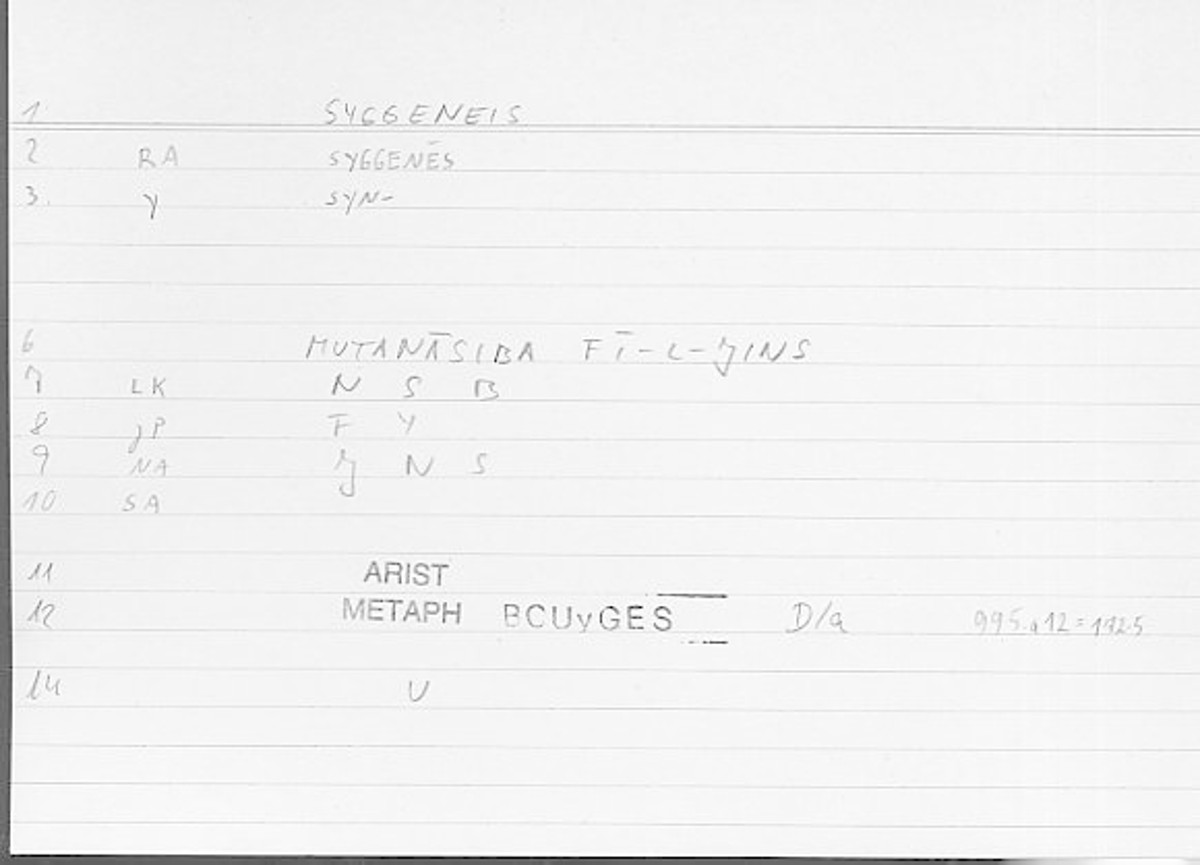 1 SYGGENEIS
2 RA SYGGENĒS
3. γ SYN-
6 MUTANĀSIBA FĪ-L-JINS
7 LK N S B
8 jP F Y
9 NA J N S
10 SA
11 ARIST
12 METAPH BCUyGES D/a 995.a12=172.5
14 U